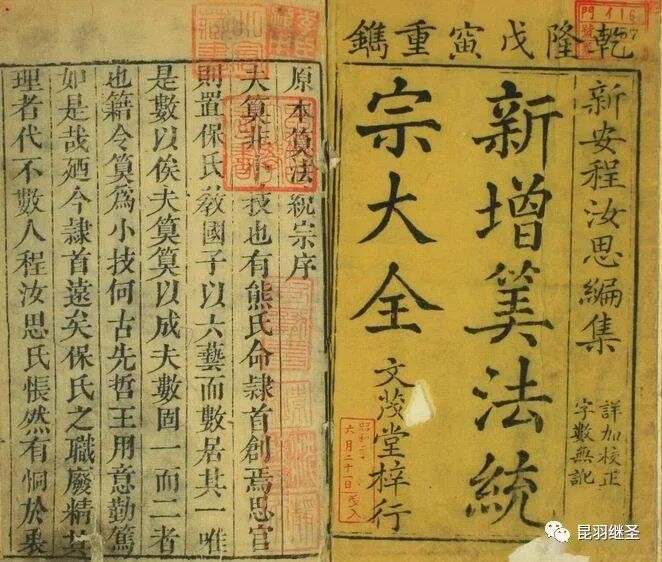 乾隆戊寅重鐫
新安程汝思編集
詳加校正
字數無訛
新增筭法統
宗大全
文茂堂梓行
原本筭法統宗序
夫筭非小技也有熊氏命隸首創焉思官
則置保氏敎國子以六藝而數居其一唯
是數以俟夫筭筭以成夫數固一而二者
也籍令筭爲小技何古先哲王用意勤篤
如是哉廼今隸首遠矣保氏之職廢精其
理者代不數人程汝思氏悵然有恫於衷
昆羽继圣